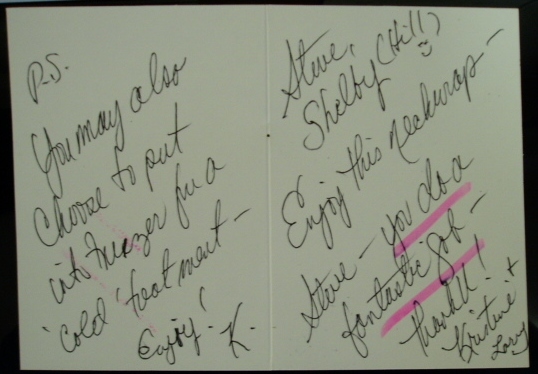 P.S.
You may also
choose to put
into freezer for a
'cold' treatment -
Enjoy! K.
Steve,
Shelby (Hill)
Enjoy this neckwrap -
Steve - you do a
fantastic job -
Thanks!
Kristine +
Larry